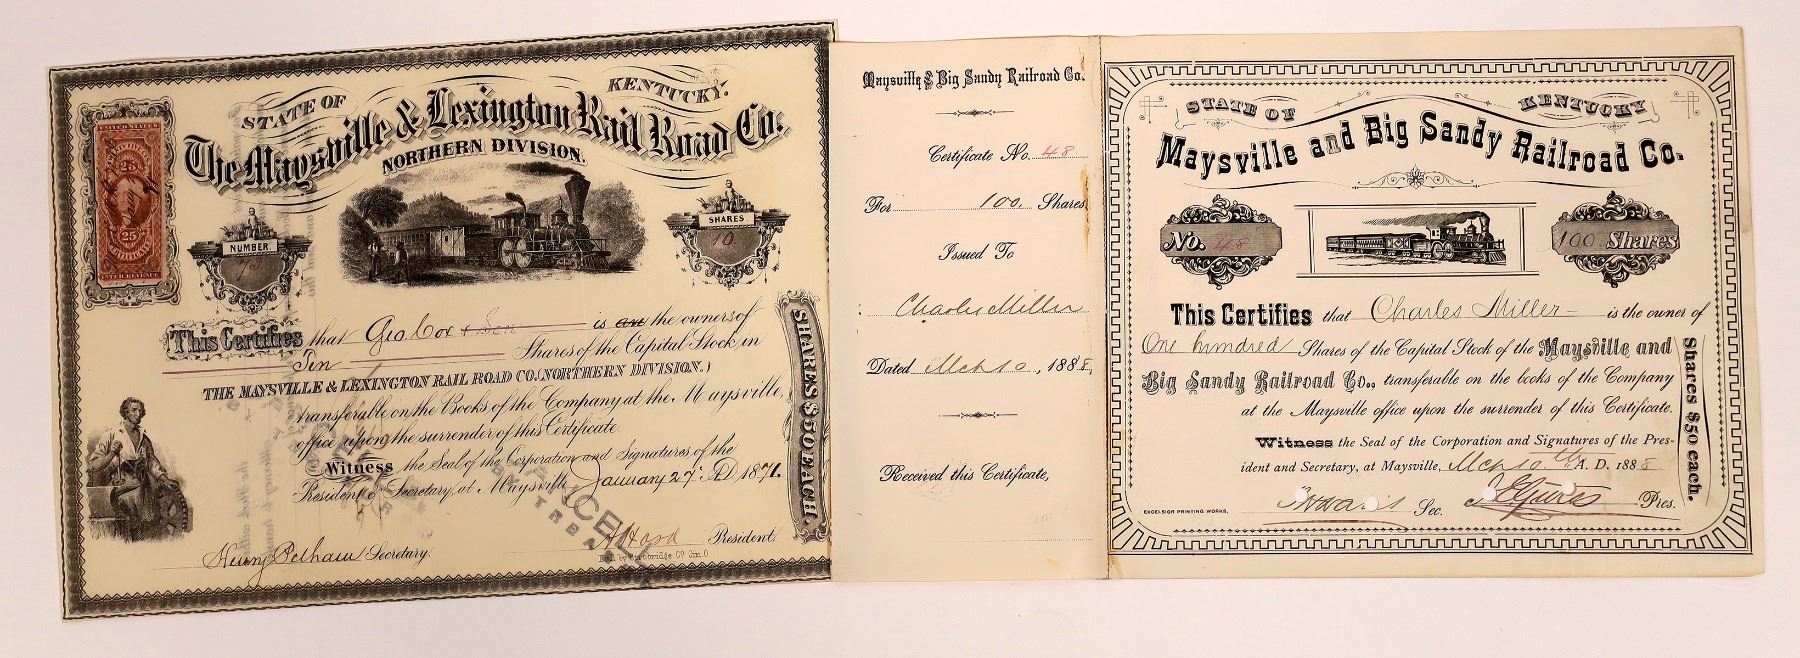 STATE OF KENTUCKY.
The Maysville & Lexington Rail Road Co.
NORTHERN DIVISION.
UNITED STATES
25 25
INTER. REVENUE
NUMBER
SHARES
10
This Certifies that Geo Cox & Son is are the owners of
Ten Shares of the Capital Stock in
THE MAYSVILLE & LEXINGTON RAIL ROAD CO. (NORTHERN DIVISION.)
transferable on the Books of the Company at the Maysville,
office upon the surrender of this Certificate.
Witness the Seal of the Corporation and Signatures of the
President & Secretary, at Maysville January 27 A.D. 1871.
President.
Henry Pelham Secretary.
SHARES $50 EACH.
Maysville & Big Sandy Railroad Co.
Certificate No. 48
For 100 Shares
Issued To
Charles Miller
Dated Mch 10, 1888,
Received this Certificate,
STATE OF KENTUCKY
Maysville and Big Sandy Railroad Co.
No. 48
100 Shares
This Certifies that Charles Miller is the owner of
One hundred Shares of the Capital Stock of the Maysville and
Big Sandy Railroad Co., transferable on the books of the Company
at the Maysville office upon the surrender of this Certificate.
Witness the Seal of the Corporation and Signatures of the Pres-
ident and Secretary, at Maysville, Mch 10th A. D. 1888
EXCELSIOR PRINTING WORKS,
Sec. Pres.
Shares $50 each.